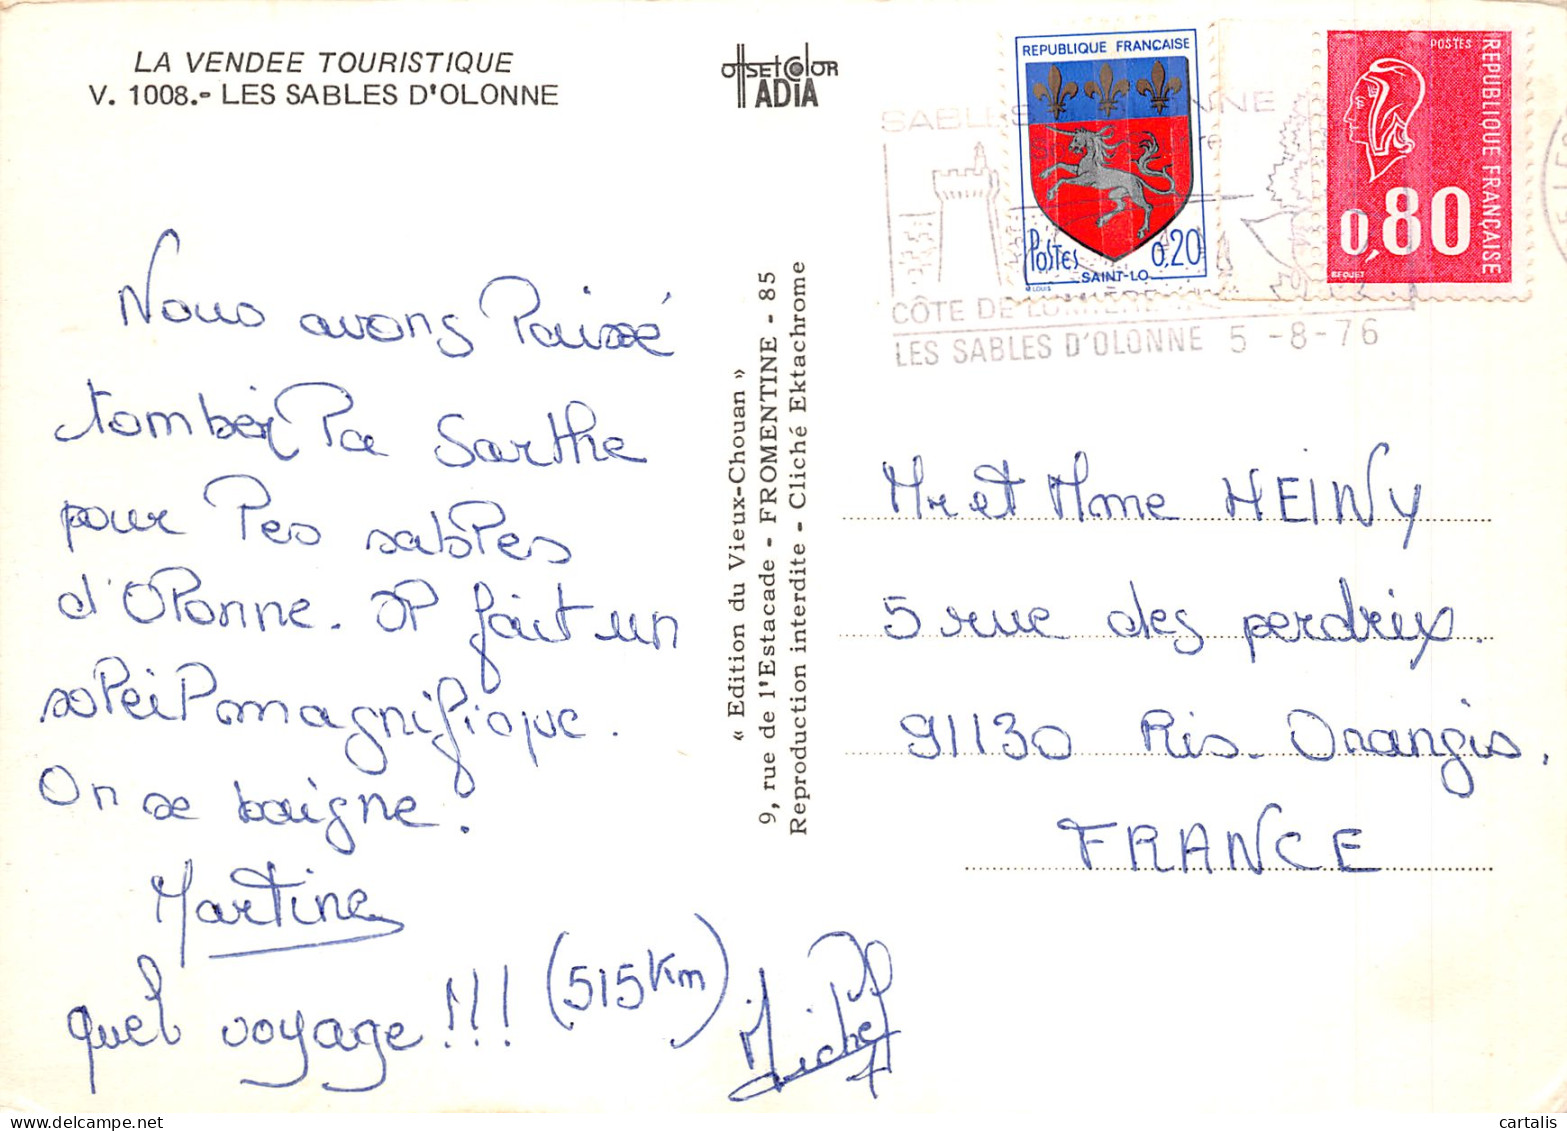 LA VENDEE TOURISTIQUE
V. 1008.- LES SABLES D'OLONNE
OFFSET COLOR
ADIA
REPUBLIQUE FRANÇAISE
POSTES 0,20
SAINT-LO
LOUIS
POSTES
REPUBLIQUE FRANÇAISE
0,80
BEQUET
CÔTE DE LUMIÈRE
LES SABLES D'OLONNE 5 -8-76
Nous avons laissé
tomber la Sarthe
pour les sables
d'Olonne. Il fait un
soleil magnifique.
On se baigne.
Martine
quel voyage!!! (515 Km)
Michel
« Edition du Vieux-Chouan »
9, rue de l'Estacade - FROMENTINE - 85
Reproduction interdite - Cliché Ektachrome
Mr et Mme HEINY
5 rue des perdrix.
91130 Ris-Orangis.
FRANCE
cartalis